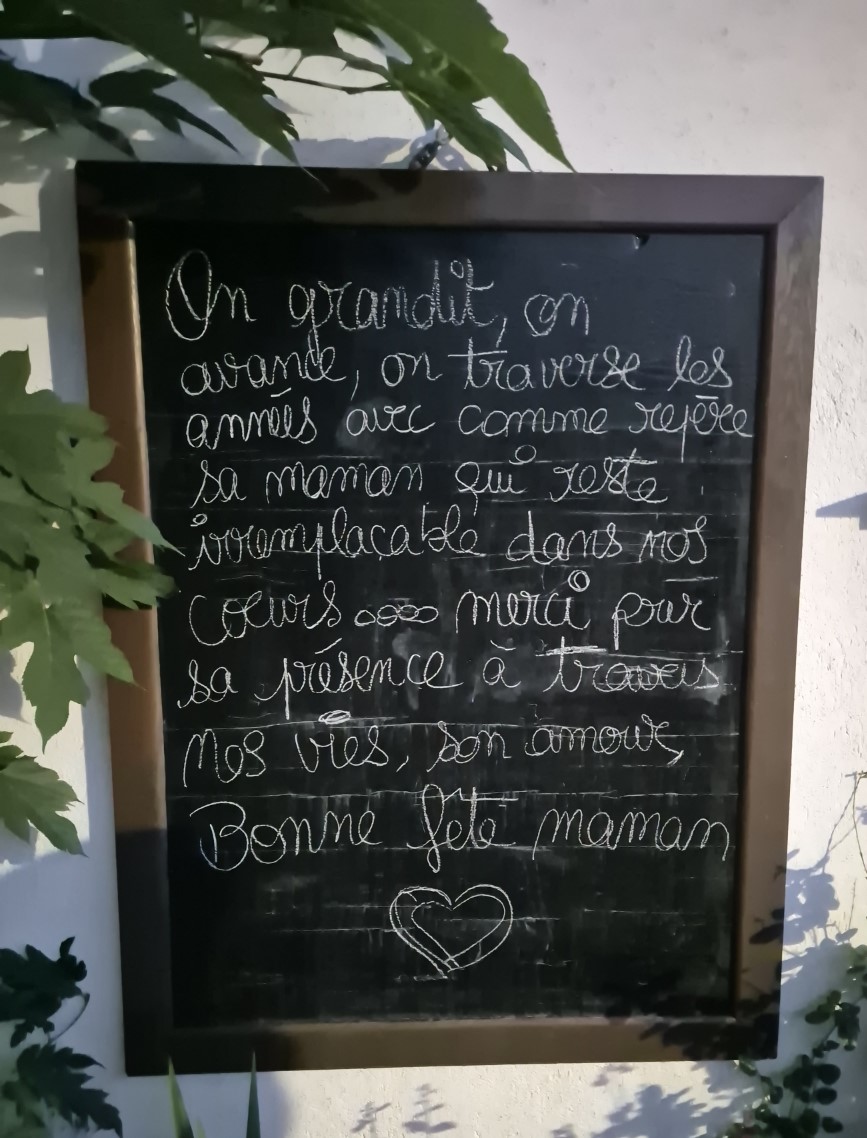 On grandit, on
avance, on traverse les
années avec comme repère
sa maman qui reste
irremplaçable dans nos
coeurs merci pour
sa présence à travers
nos vies, son amour,
Bonne fête maman